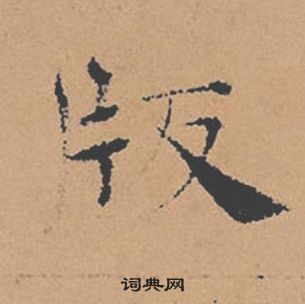 版
词典网